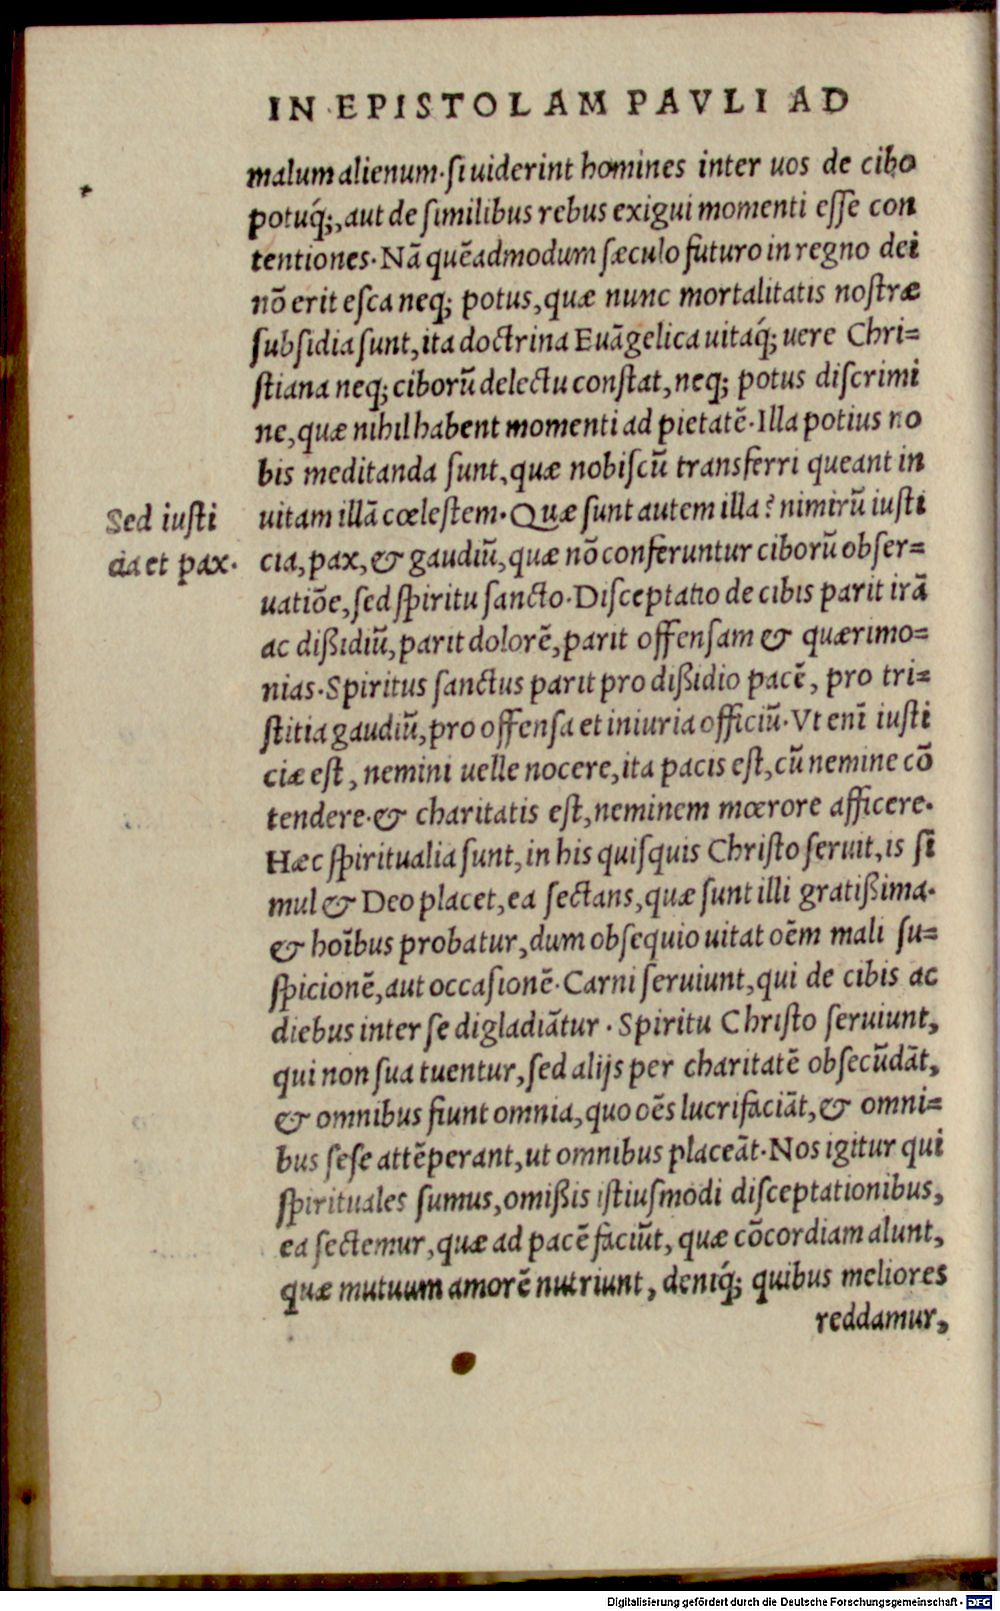 IN EPISTOLAM PAVLI AD
malum alienum·si uiderint homines inter uos de cibo
potuq́;, aut de similibus rebus exigui momenti esse con
tentiones·Nā quēadmodum sæculo futuro in regno dei
nō erit esca neq; potus, quæ nunc mortalitatis nostræ
subsidia sunt, ita doctrina Euāgelica uitaq́; uere Chri=
stiana neq; ciborū delectu constat, neq; potus discrimi
ne, quæ nihil habent momenti ad pietatē·Illa potius no
bis meditanda sunt, quæ nobiscū transferri queant in
Sed iusti
cia et pax·
uitam illā cœlestem·Quæ sunt autem illa? nimirū iusti
cia, pax, & gaudiū, quæ nō conferuntur ciborū obser=
uatiōe, sed spiritu sancto·Disceptatio de cibis parit irā
ac dißidiū, parit dolorē, parit offensam & quærimo=
nias·Spiritus sanctus parit pro dißidio pacē, pro tri=
stitia gaudiū, pro offensa et iniuria officiū·Vt enī iusti
ciæ est, nemini uelle nocere, ita pacis est, cū nemine cō
tendere·& charitatis est, neminem mœrore afficere·
Hæc spiritualia sunt, in his quisquis Christo seruit, is si
mul & Deo placet, ea sectans, quæ sunt illi gratißima·
& hoībus probatur, dum obsequio uitat oēm mali su=
spicionē, aut occasionē·Carni seruiunt, qui de cibis ac
diebus inter se digladiātur·Spiritu Christo seruiunt,
qui non sua tuentur, sed alijs per charitatē obsecūdāt,
& omnibus fiunt omnia, quo oēs lucrifaciāt, & omni=
bus sese attēperant, ut omnibus placeāt·Nos igitur qui
spirituales sumus, omißis istiusmodi disceptationibus,
ea sectemur, quæ ad pacē faciūt, quæ cōcordiam alunt,
quæ mutuum amorē nutriunt, deniq́; quibus meliores
reddamur,
Digitalisierung gefördert durch die Deutsche Forschungsgemeinschaft - DFG